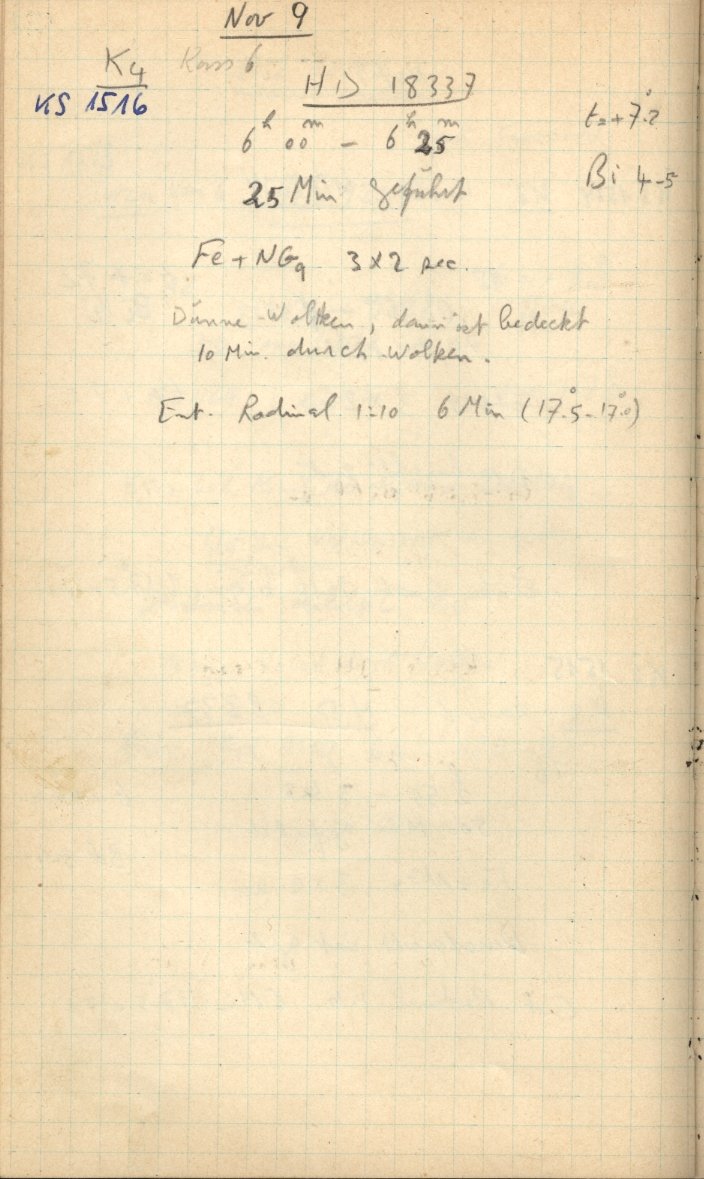 Nov 9
K4 Kass 6
KS 1516
HD 18337
6h 00m – 6h 25m
t=+7.°2
25 Min geführt
Bi 4-5
Fe + NG9 3x2 sec.
Dünne Wolken, dann ist bedeckt
10 Min. durch Wolken.
Ent. Rodinal 1:10 6 Min (17.°5-17.°0)